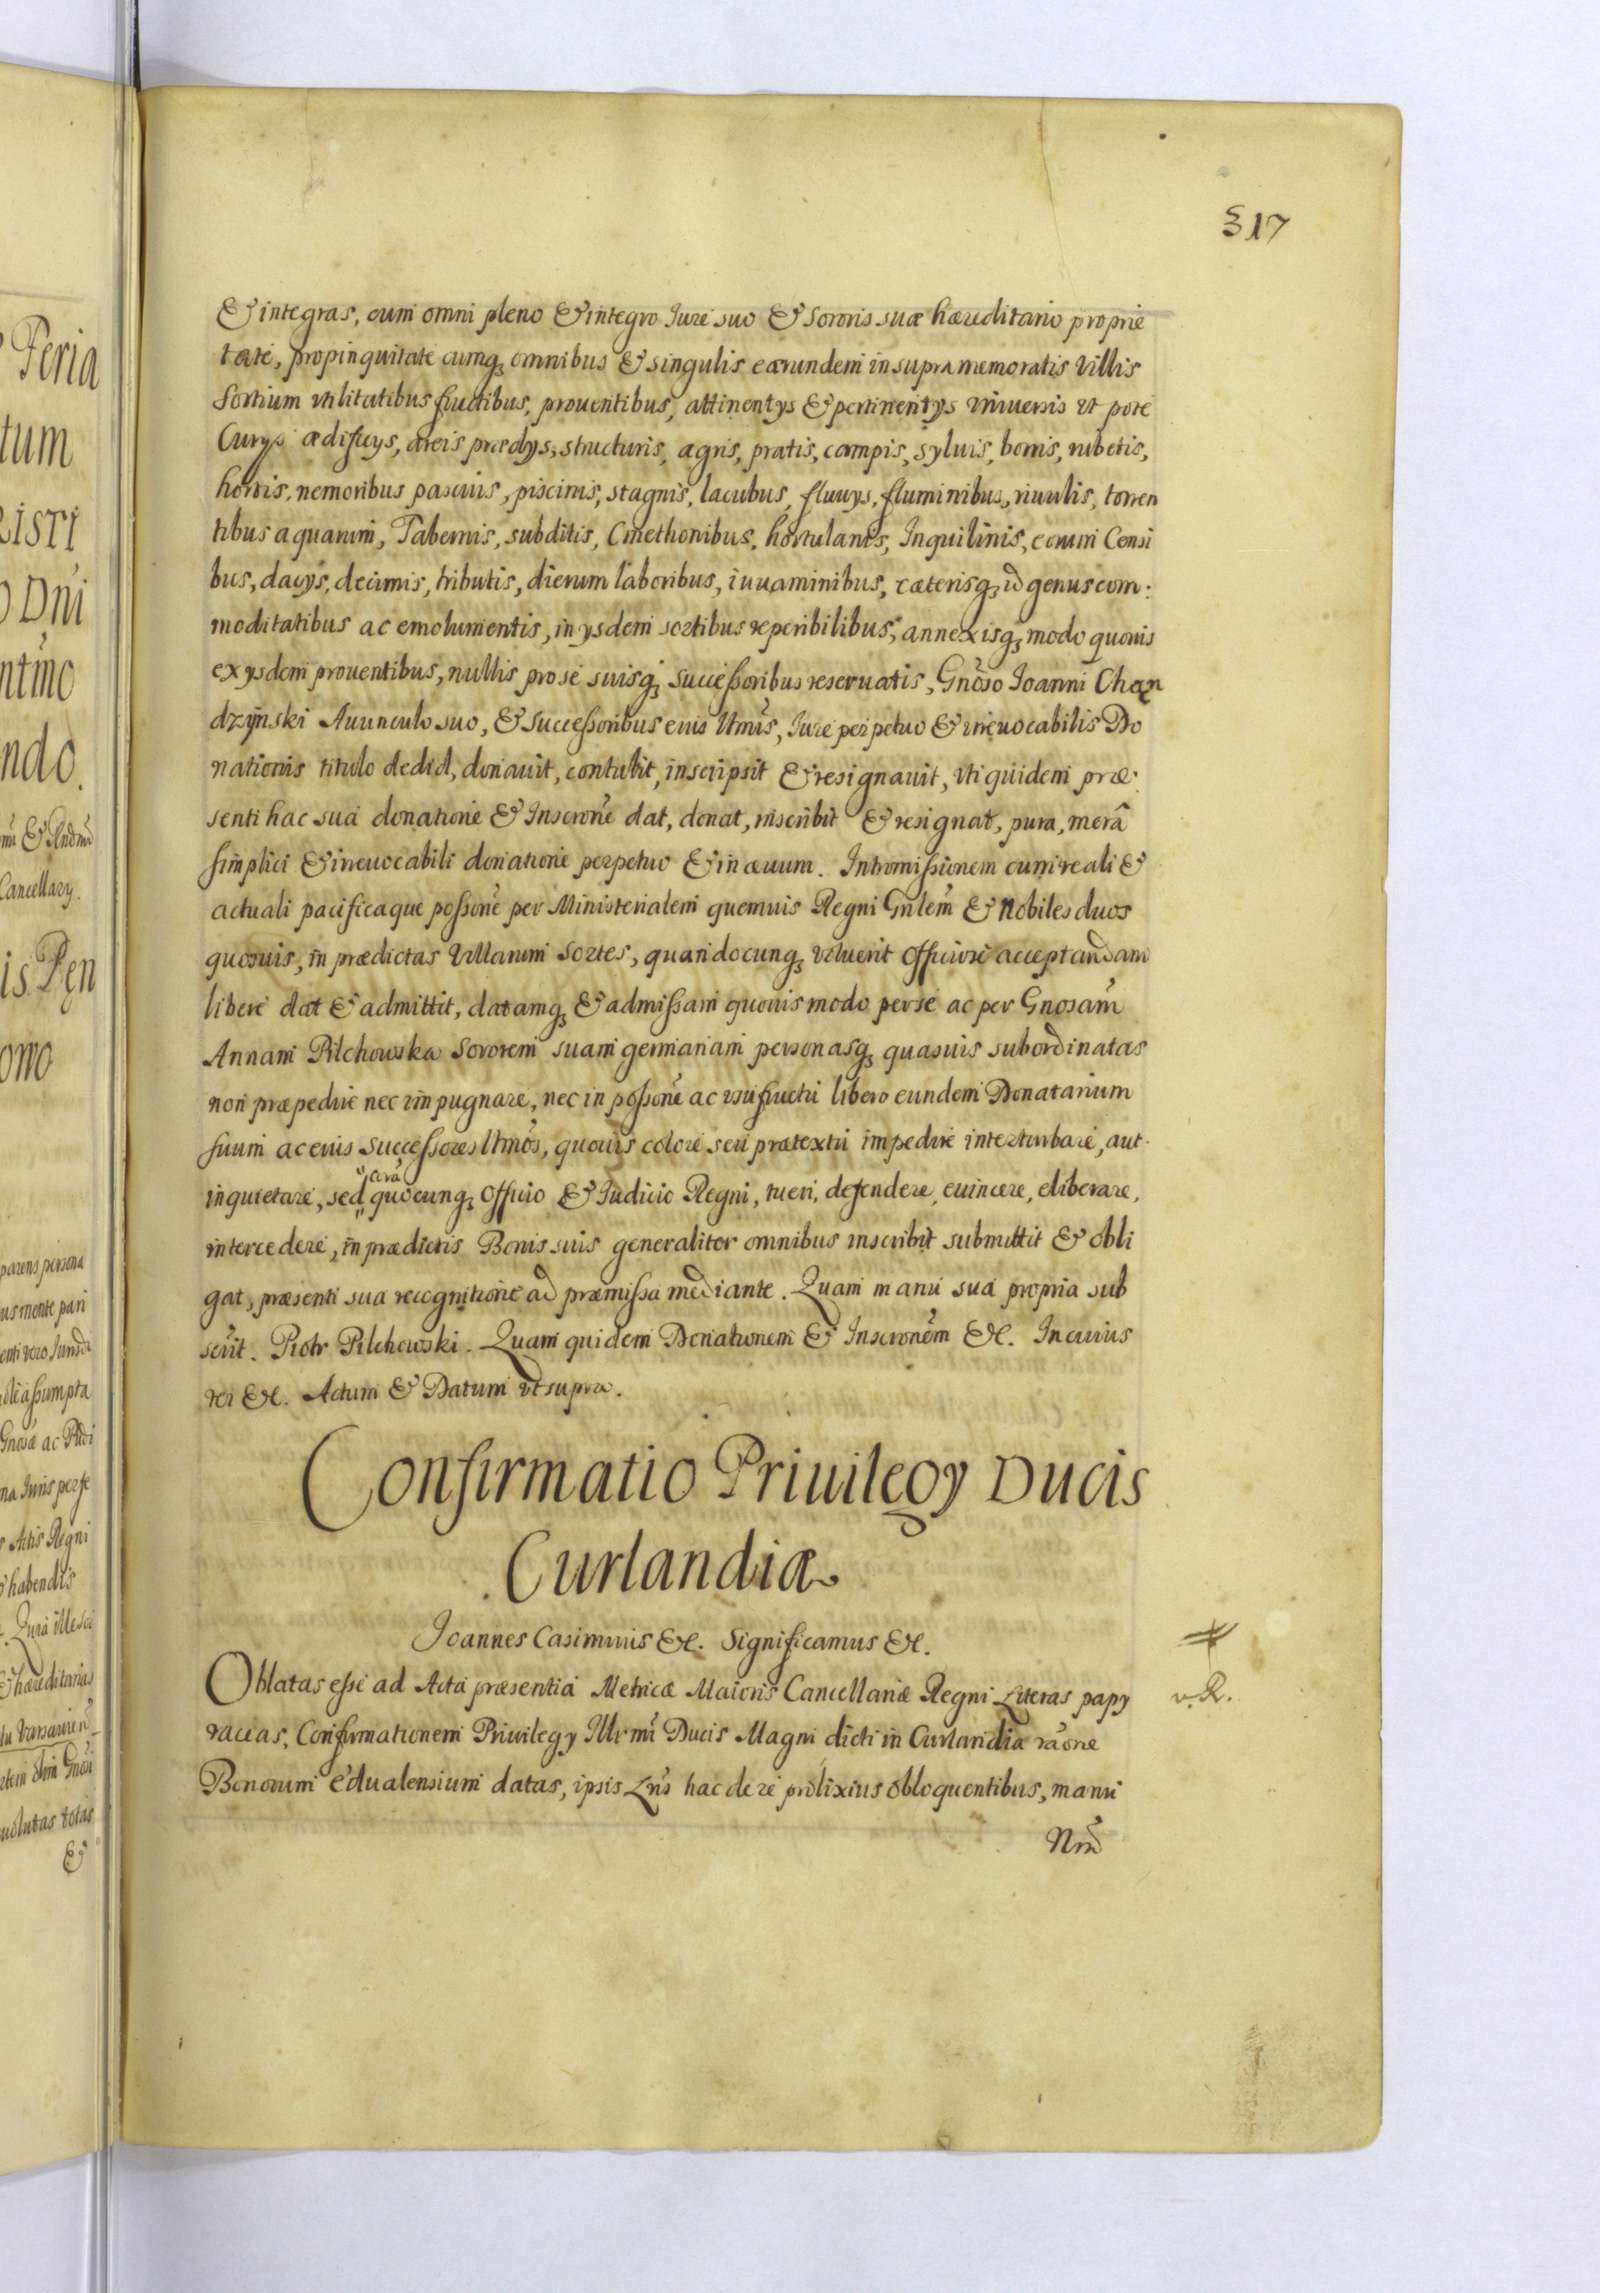 317
& integras, cum omni pleno & integro Iure suo & Sororis suæ hæreditario proprie
tate, propinquitate cumq; omnibus & singulis earundem in supra memoratis Villis
Sortium vtilitatibus fructibus, prouentibus, attinentys & pertinentys vniuersis vt pote
Curys ædificys, areis prædys, structuris, agris, pratis, campis, syluis, borris, rubetis,
hortis, nemoribus pascuis, piscinis, stagnis, lacubus, fluuys, fluminibus, riuulis, torren
tibus aquarum, Tabernis, subditis, Cmethonibus, hortulanis, Inquilinis, eorum Censi
bus, dacys, decimis, tributis, dierum laboribus, iuuaminibus, cæterisq; id genus com:
moditatibus ac emolumentis, in ysdem sortibus reperibilibus, annexisq; modo quouis
ex ysdem prouentibus, nullis pro se suisq; Successoribus reseruatis, Gnoso Ioanni Chąn
dzynski Auunculo suo, & Successoribus eius ltmis, Iure perpetuo & irreuocabilis Do
nationis titulo dedid, donauit, contulit, inscripsit & resignauit, vti quidem præ:
senti hac sua donatione & Inscrone dat, donat, inscribit & resignat, pura, merâ
simplici & irreuocabili donatione perpetuo & in æuum. Intromissionem cum reali &
actuali pacificaque possone per Ministerialem quemuis Regni Gnlem & Nobiles duos
quosuis, in prædictas Villarum Sortes, quandocunq; voluerit Officiose acceptandam
libere dat & admittit, datamq; & admissam quouis modo per se ac per Gnosam
Annam Pilchowska Sororem suam germanam personasq; quasuis subordinatas
non præpedire nec impugnare, nec in possone ac vsufructu libero eundem Donatarium
suum ac eius Successores ltmos, quouis colore seu prætextu impedire interturbare, aut
inquietare, sed quocunq; Officio & Iudicio Regni, tueri, defendere, euincere, eliberare,
intercedere, in prædictis Bonis suis generaliter omnibus inscribit submittit & obli
gat, præsenti sua recognitione ad præmissa mediante. Quam manu sua propria sub
scrit. Piotr Pilchowski. Quam quidem Donationem & Inscronem &c. In cuius
rei &c. Actum & Datum vt supra.
Confirmatio Priuilegy Ducis
Curlandiæ
Ioannes Casimirus &c. Significamus &c.
Oblatas esse ad Acta præsentia Metricæ Maioris Cancellariæ Regni Literas papy
raceas, Confirmationem Priuilegy Illrmi Ducis Magni dicti in Curlandia raone
Bonorum Edualensium datas, ipsis Lris hac de re prolixius obloquentibus, manu
v. R.
Nra